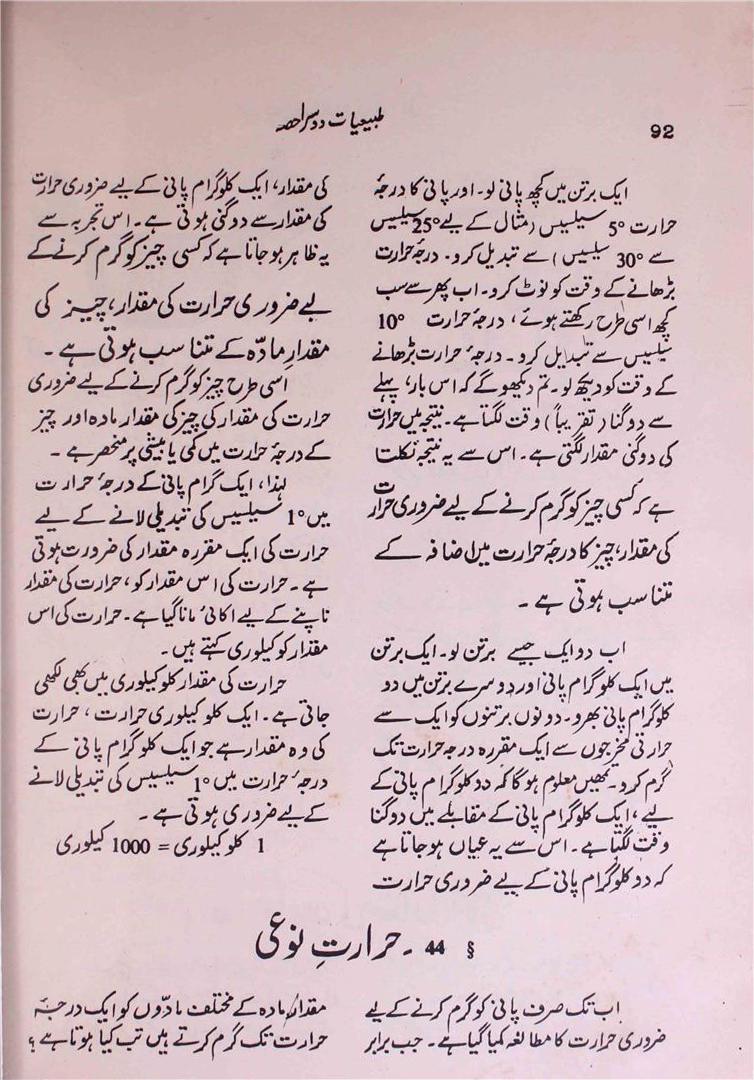 92
طبیعیات دوسرا حصہ
ایک برتن میں کچھ پانی لو۔ اور پانی کا درجۂ
حرارت 5° سیلسیس (مثال کے لیے 25° سیلسیس
سے 30° سیلسیس) سے تبدیل کرو۔ درجۂ حرارت
بڑھانے کے وقت کو نوٹ کرو۔ اب پھر سے سب
کچھ اسی طرح رکھتے ہوئے، درجۂ حرارت 10°
سیلسیس سے تبدیل کرو۔ درجۂ حرارت بڑھانے
کے وقت کو دیکھ لو۔ تم دیکھو گے کہ اس بار، پہلے
سے دوگنا (تقریباً) وقت لگتا ہے۔ نتیجہ میں حرارت
کی دوگنی مقدار لگتی ہے۔ اس سے یہ نتیجہ نکلتا
ہے کہ کسی چیز کو گرم کرنے کے لیے ضروری حرارت
کی مقدار، چیز کا درجۂ حرارت میں اضافہ کے
متناسب ہوتی ہے۔
اب دو ایک جیسے برتن لو۔ ایک برتن
میں ایک کلوگرام پانی اور دوسرے برتن میں دو
کلوگرام پانی بھرو۔ دونوں برتنوں کو ایک سے
حرارتی مخرجوں سے ایک مقررہ درجہ حرارت تک
گرم کرو۔ تمھیں معلوم ہوگا کہ دو کلوگرام پانی کے
لیے، ایک کلوگرام پانی کے مقابلے میں دوگنا
وقت لگتا ہے۔ اس سے یہ عیاں ہو جاتا ہے
کہ دو کلوگرام پانی کے لیے ضروری حرارت
کی مقدار، ایک کلوگرام پانی کے لیے ضروری حرارت
کی مقدار سے دوگنی ہوتی ہے۔ اس تجربہ سے
یہ ظاہر ہو جاتا ہے کہ کسی چیز کو گرم کرنے کے
لیے ضروری حرارت کی مقدار، چیز کی
مقدارِ مادّہ کے متناسب ہوتی ہے۔
اسی طرح چیز کو گرم کرنے کے لیے ضروری
حرارت کی مقدار کی چیز کی مقدار مادہ اور چیز
کے درجۂ حرارت میں کمی یا بیشی پر منحصر ہے۔
لہٰذا، ایک گرام پانی کے درجۂ حرارت
میں 1° سیلسیس کی تبدیلی لانے کے لیے
حرارت کی ایک مقررہ مقدار کی ضرورت ہوتی
ہے۔ حرارت کی اس مقدار کو، حرارت کی مقدار
ناپنے کے لیے اکائی مانا گیا ہے۔ حرارت کی اس
مقدار کو کیلوری کہتے ہیں۔
حرارت کی مقدار کلو کیلوری میں بھی لکھی
جاتی ہے۔ ایک کلو کیلوری حرارت، حرارت
کی وہ مقدار ہے جو ایک کلوگرام پانی کے
درجۂ حرارت میں 1° سیلسیس کی تبدیلی لانے
کے لیے ضروری ہوتی ہے۔
1 کلو کیلوری = 1000 کیلوری
§ 44 ۔ حرارتِ نوعی
اب تک صرف پانی کو گرم کرنے کے لیے
ضروری حرارت کا مطالعہ کیا گیا ہے۔ جب برابر
مقدارِ مادہ کے مختلف مادّوں کو ایک درجۂ
حرارت تک گرم کرتے ہیں تب کیا ہوتا ہے؟